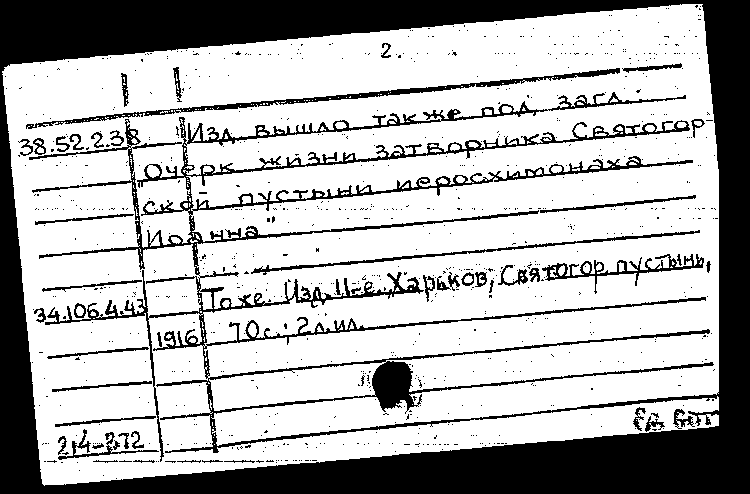 2.
38.52.2.38. Изд. вышло также под загл.:
"Очерк жизни затворника Святогор
ской пустыни иеросхимонаха
Иоанна"
34.106.4.43 То же. Изд. II-е. Харьков, Святогор. пустынь,
1916 70 с.; 2 л. ил.
214-372